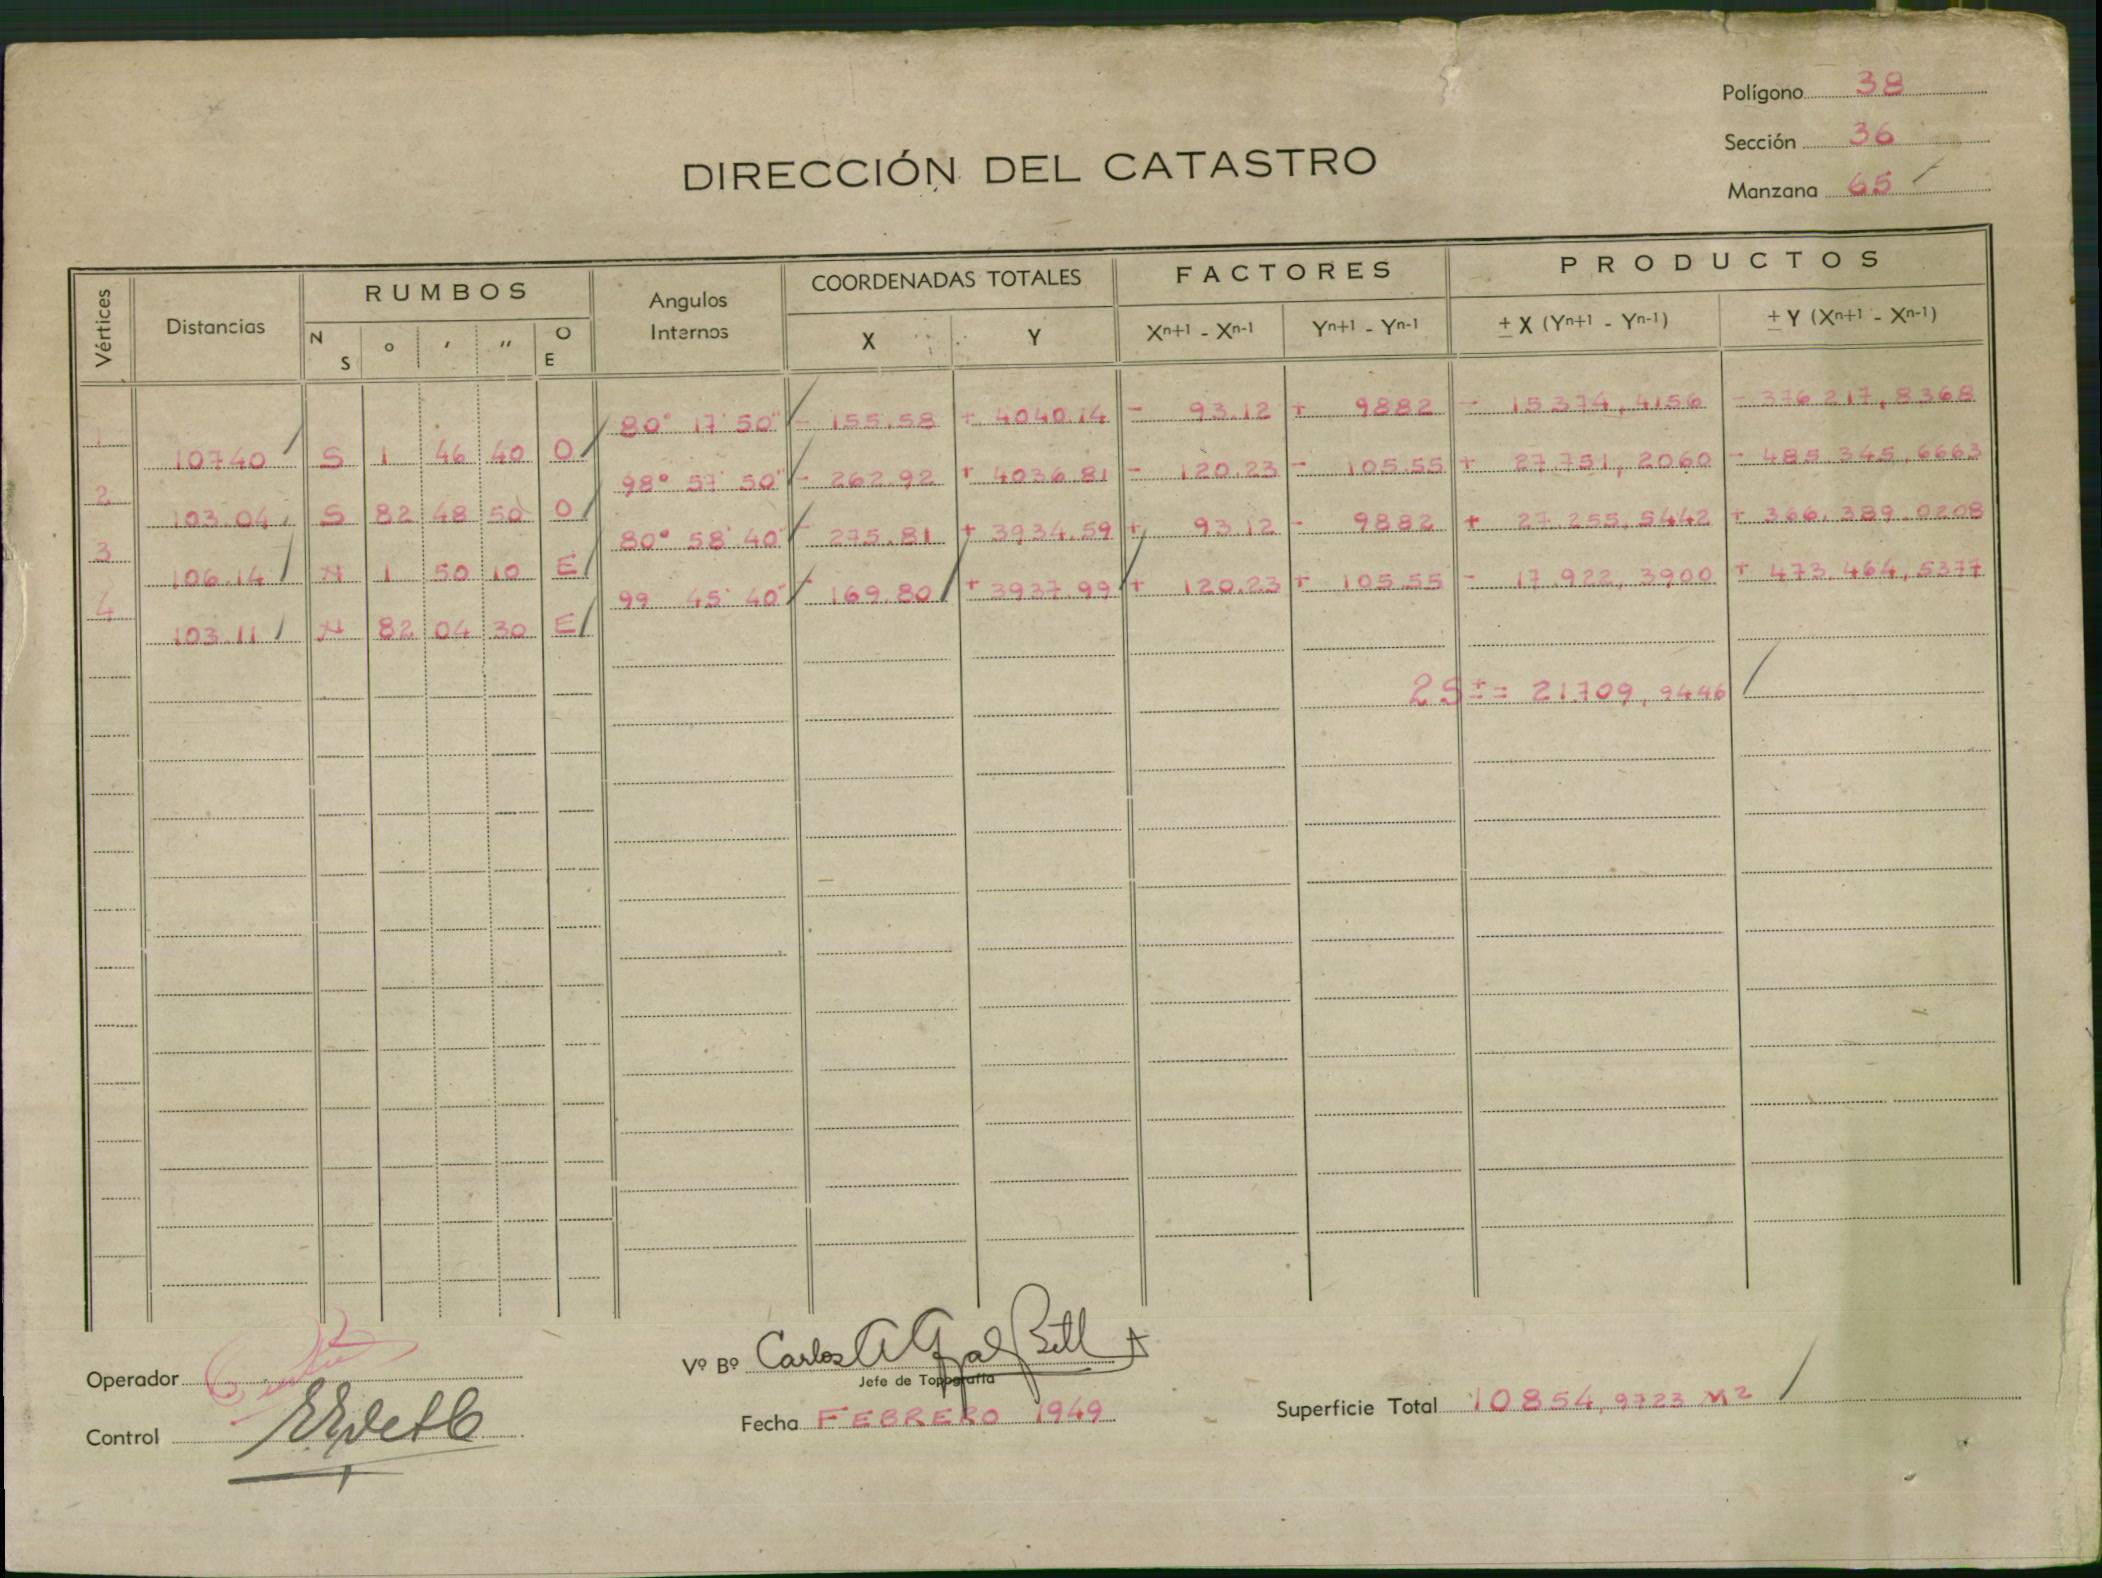 Polígono 38
Sección 36
Manzana 65
DIRECCIÓN DEL CATASTRO
Vértices Distancias RUMBOS Angulos Internos COORDENADAS TOTALES FACTORES PRODUCTOS
N S ° ' " O E X Y Xn+1 - Xn-1 Yn+1 - Yn-1 ± X (Yn+1 - Yn-1) ± Y (Xn+1 - Xn-1)
1 80° 17' 50" - 155.58 + 4040.14 - 93.12 + 9882 - 15374,4156 - 376 217,8368
10740 S 1 46 40 O
2 98° 57' 50" - 262.92 + 4036.81 - 120.23 - 105.55 + 27 751,2060 - 485 345,6663
103.04 S 82 48 50 O
3 80° 58' 40" - 275.81 + 3934.59 + 93.12 - 9882 + 27.255,5442 + 366.389,0208
106.14 N 1 50 10 E
4 99 45' 40" - 169.80 + 3937.99 + 120.23 + 105.55 - 17.922,3900 + 473.464,5377
103.11 N 82 04 30 E
2S ± = 21.709,9446
Operador
Vº Bº Carlos A
Jefe de Topografía
Control
Fecha FEBRERO 1949
Superficie Total 10854,9723 M2